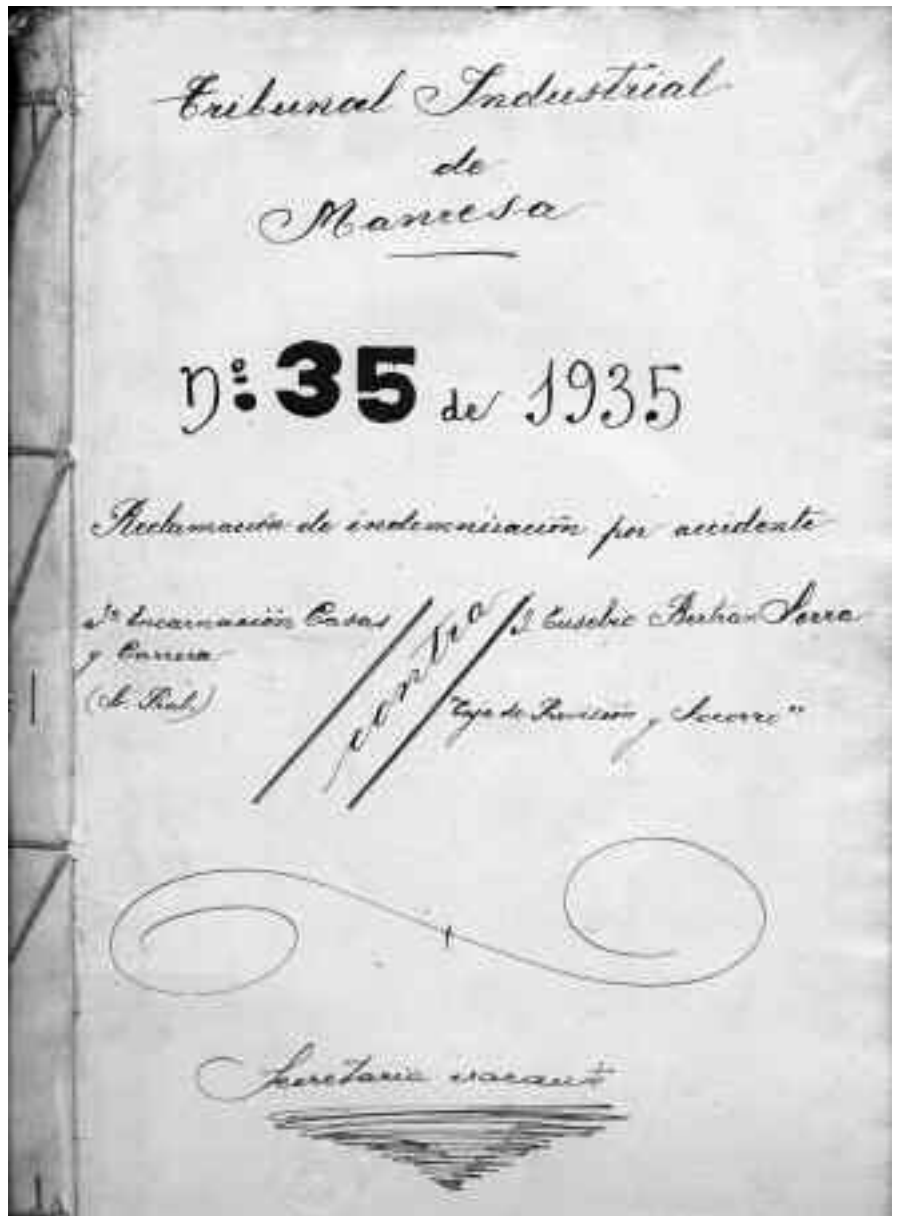 Tribunal Industrial
de
Manresa
Nº: 35 de 1935
Reclamación de indemnización por accidente
Dª Encarnación Casas
y Carrera
contra
D. Eusebio Bertran Serra
"Caja de Previsión y Socorro"
Secretaria vacante